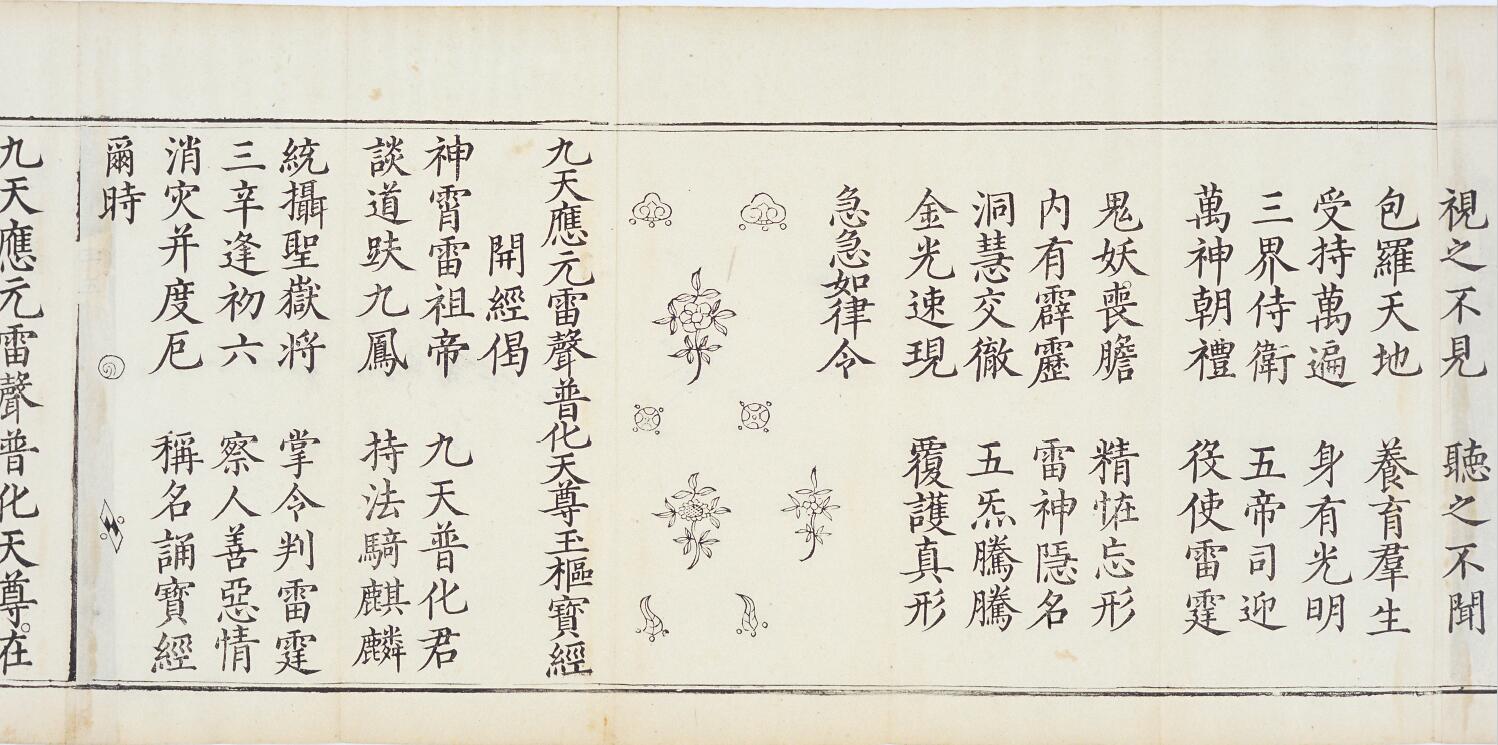 視之不見 聽之不聞
包羅天地 養育羣生
受持萬遍 身有光明
三界侍衛 五帝司迎
萬神朝禮 役使雷霆
鬼妖喪膽 精怪忘形
内有霹靂 雷神隱名
洞慧交徹 五炁騰騰
金光速現 覆護真形
急急如律令
九天應元雷聲普化天尊玉樞寳經
開經偈
神霄雷祖帝 九天普化君
談道趺九鳳 持法騎麒麟
統攝聖嶽將 掌令判雷霆
三辛逢初六 察人善惡情
消灾并度厄 稱名誦寳經
爾時
九天應元雷聲普化天尊。在